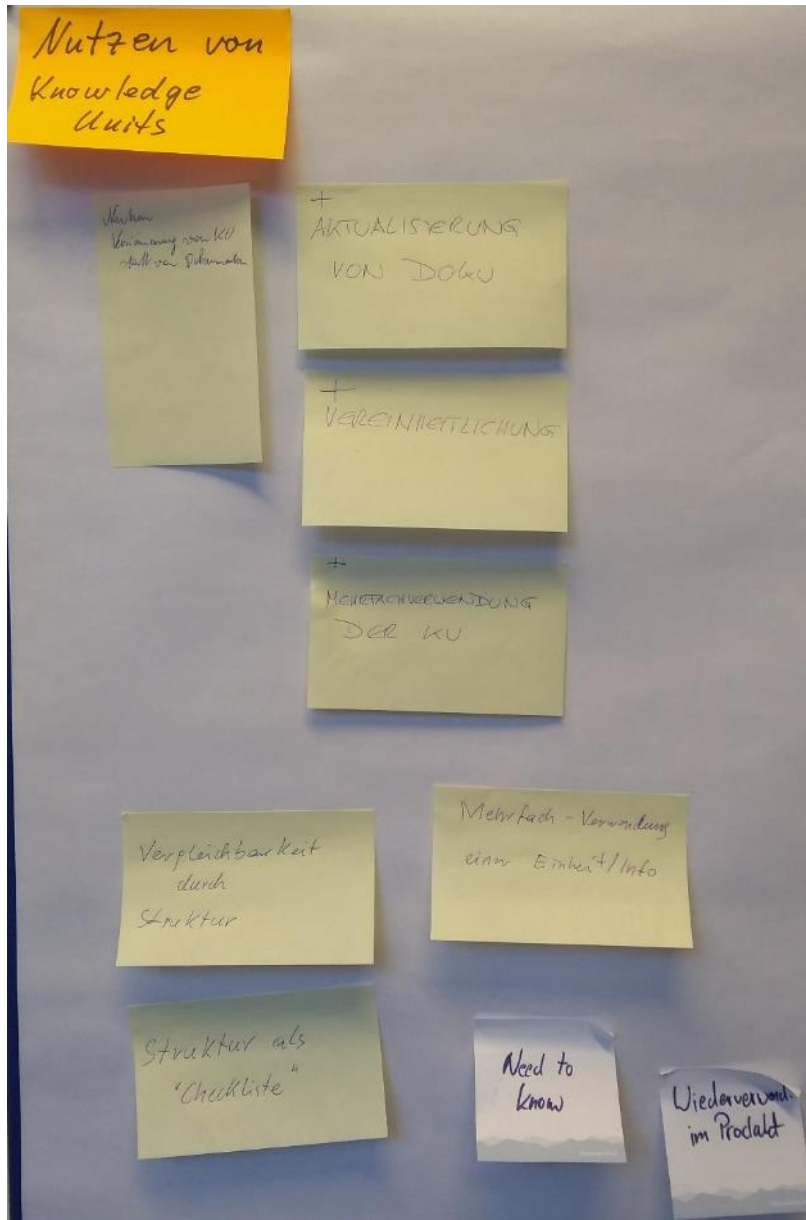 Nutzen von
Knowledge
Units
Nutzen
Versionierung von KU
statt von Dokumenten
+
AKTUALISIERUNG
VON DOKU
+
VEREINHEITLICHUNG
+
MEHRFACHVERWENDUNG
DER KU
Vergleichbarkeit
durch
Struktur
Mehrfach - Verwendung
einer Einheit/Info
Struktur als
"Checkliste"
Need to
know
Wiederverwend.
im Produkt